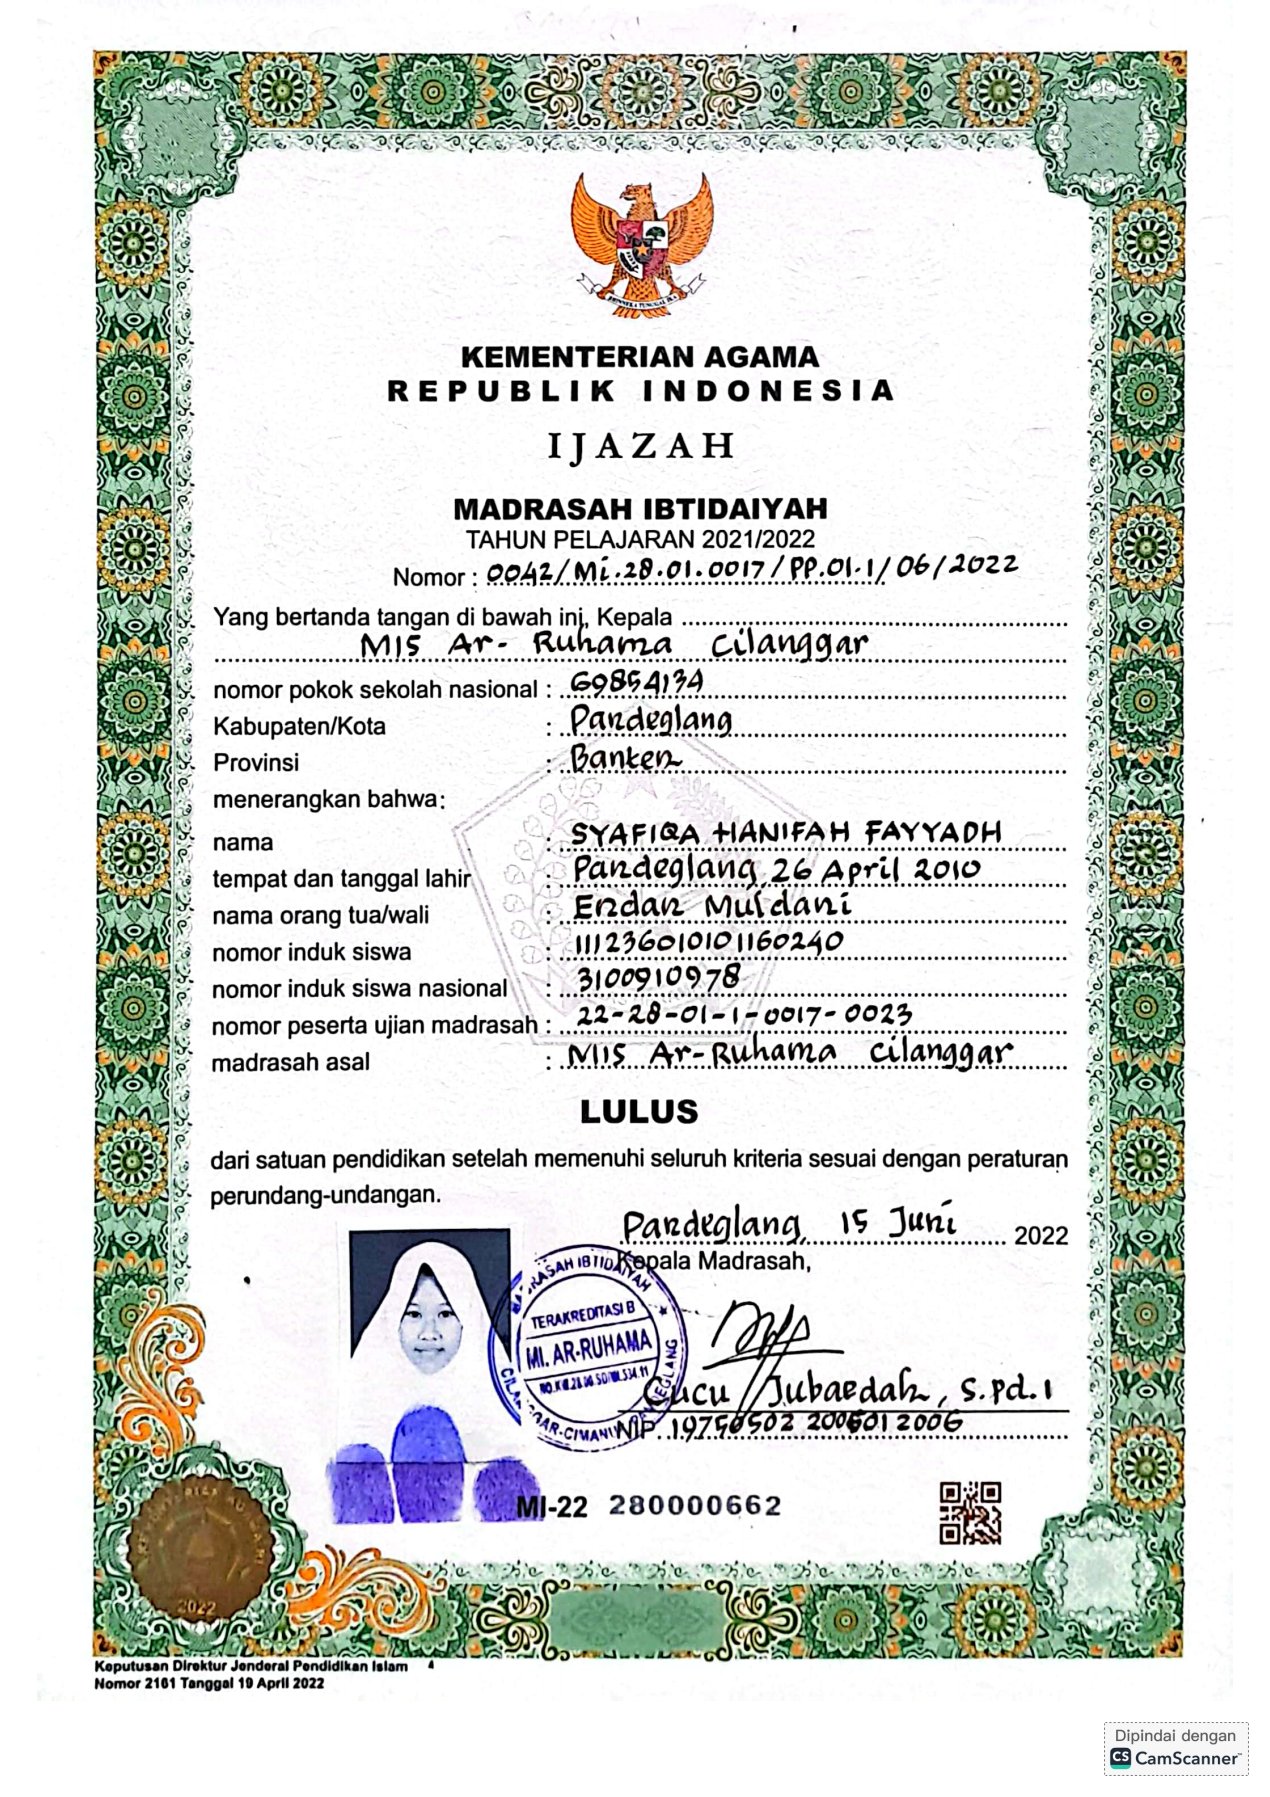 KEMENTERIAN AGAMA
REPUBLIK INDONESIA
IJAZAH
MADRASAH IBTIDAIYAH
TAHUN PELAJARAN 2021/2022
Nomor : 0042/Mi.28.01.0017/PP.01.1/06/2022
Yang bertanda tangan di bawah ini, Kepala
MIS Ar-Ruhama Cilanggar
nomor pokok sekolah nasional : 69854134
Kabupaten/Kota : Pandeglang
Provinsi : Banten
menerangkan bahwa:
nama : SYAFIQA HANIFAH FAYYADH
tempat dan tanggal lahir : Pandeglang, 26 April 2010
nama orang tua/wali : Endan Muldani
nomor induk siswa : 111236010101160240
nomor induk siswa nasional : 3100910978
nomor peserta ujian madrasah : 22-28-01-1-0017-0023
madrasah asal : MIS Ar-Ruhama Cilanggar
LULUS
dari satuan pendidikan setelah memenuhi seluruh kriteria sesuai dengan peraturan
perundang-undangan.
Pandeglang, 15 Juni 2022
Kepala Madrasah,
MADRASAH IBTIDAIYAH
TERAKREDITASI B
MI. AR-RUHAMA
PANDEGLANG
Cucu Jubaedah, S.Pd.I
NIP. 19750502 200601 2006
MI-22 280000662
2022
Keputusan Direktur Jenderal Pendidikan Islam
Nomor 2161 Tanggal 19 April 2022
Dipindai dengan
CS CamScanner